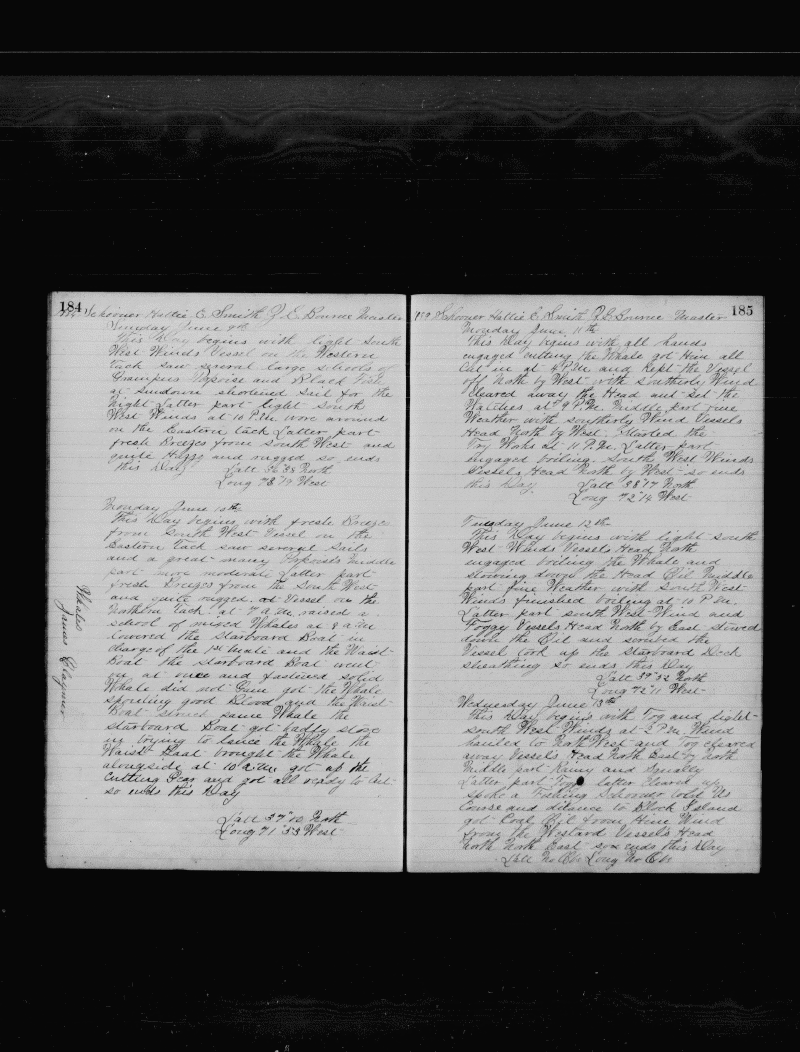 184
Schooner Hattie E. Smith J. E. Bourne Master
Sunday June 9th
This Day begins with light South
West Winds Vessel on the Western
tack saw several large schools of
Grampus Porpoise and Black Fish
at Sundown shortened Sail for the
Night Latter part light South
West Winds at 10 P.M. wore around
on the Eastern tack Latter part
fresh Breezes from South West and
quite Hazy and rugged so ends
this Day Latt 36"38 North
Long 73"19 West
Monday June 10th
This Day begins with fresh Breeze
from South West Vessel on the
Eastern tack saw several Sails
and a great many Porpoises Middle
part more moderate Latter part
fresh Breezes from the South West
and quite rugged at Vessel on the
Northern tack at 7 A.M. raised a
school of mixed Whales at 8 A.M.
lowered the Starboard Boat in
charge of the 1st Mate and the Waist
Boat the Starboard Boat went
on at once and fastened solid
Whale did not Run got the Whale
spouting good Blood and the Waist
Boat struck same Whale the
Starboard Boat got badly stove
in trying to lance the Whale the
Waist Boat brought the Whale
alongside at 10 A.M. got up the
Cutting Gear and got all ready to Cut
so ends this Day
Latt 37" North
Long 71"53 West
Whales
James
185
Schooner Hattie E. Smith J. E. Bourne Master
Monday June 11th
This Day begins with all hands
engaged cutting the Whale got Him all
Cut in at 4 P.M. and kept the Vessel
off North by West with Southerly Wind
cleared away the Head and set the
Watches at 9 P.M. Middle part fine
Weather with Southerly Wind Vessels
Head North by West Started the
Try Works at 11 P.M. Latter part
engaged boiling South West Winds
Vessels Head North by West so ends
this Day Latt 38"17 North
Long 72"14 West
Tuesday June 12th
This Day begins with light South
West Winds Vessels Head North
engaged boiling the Whale and
stowing down the Head Oil Middle
part fine Weather with South West
Winds finished boiling at 10 P.M.
Latter part South West Wind and
Foggy Vessels Head North by East stowed
down the Oil and scrubed the
Vessel took up the Starboard Deck
sheathing so ends this Day
Latt 39"32 North
Long 72"11 West
Wednesday June 13th
This Day begins with Fog and light
South West Winds at 2 P.M. Wind
hauled to North West and Fog cleared
away Vessels Head North East by North
Middle part Rainy and Squally
Latter part Fog later Cleared up
spoke a Fishing Schooner told Us
Course and distance to Block Island
got Coal Oil from Him Wind
from the Westard Vessels Head
North North East so ends this Day
Latt No Obs Long No Obs